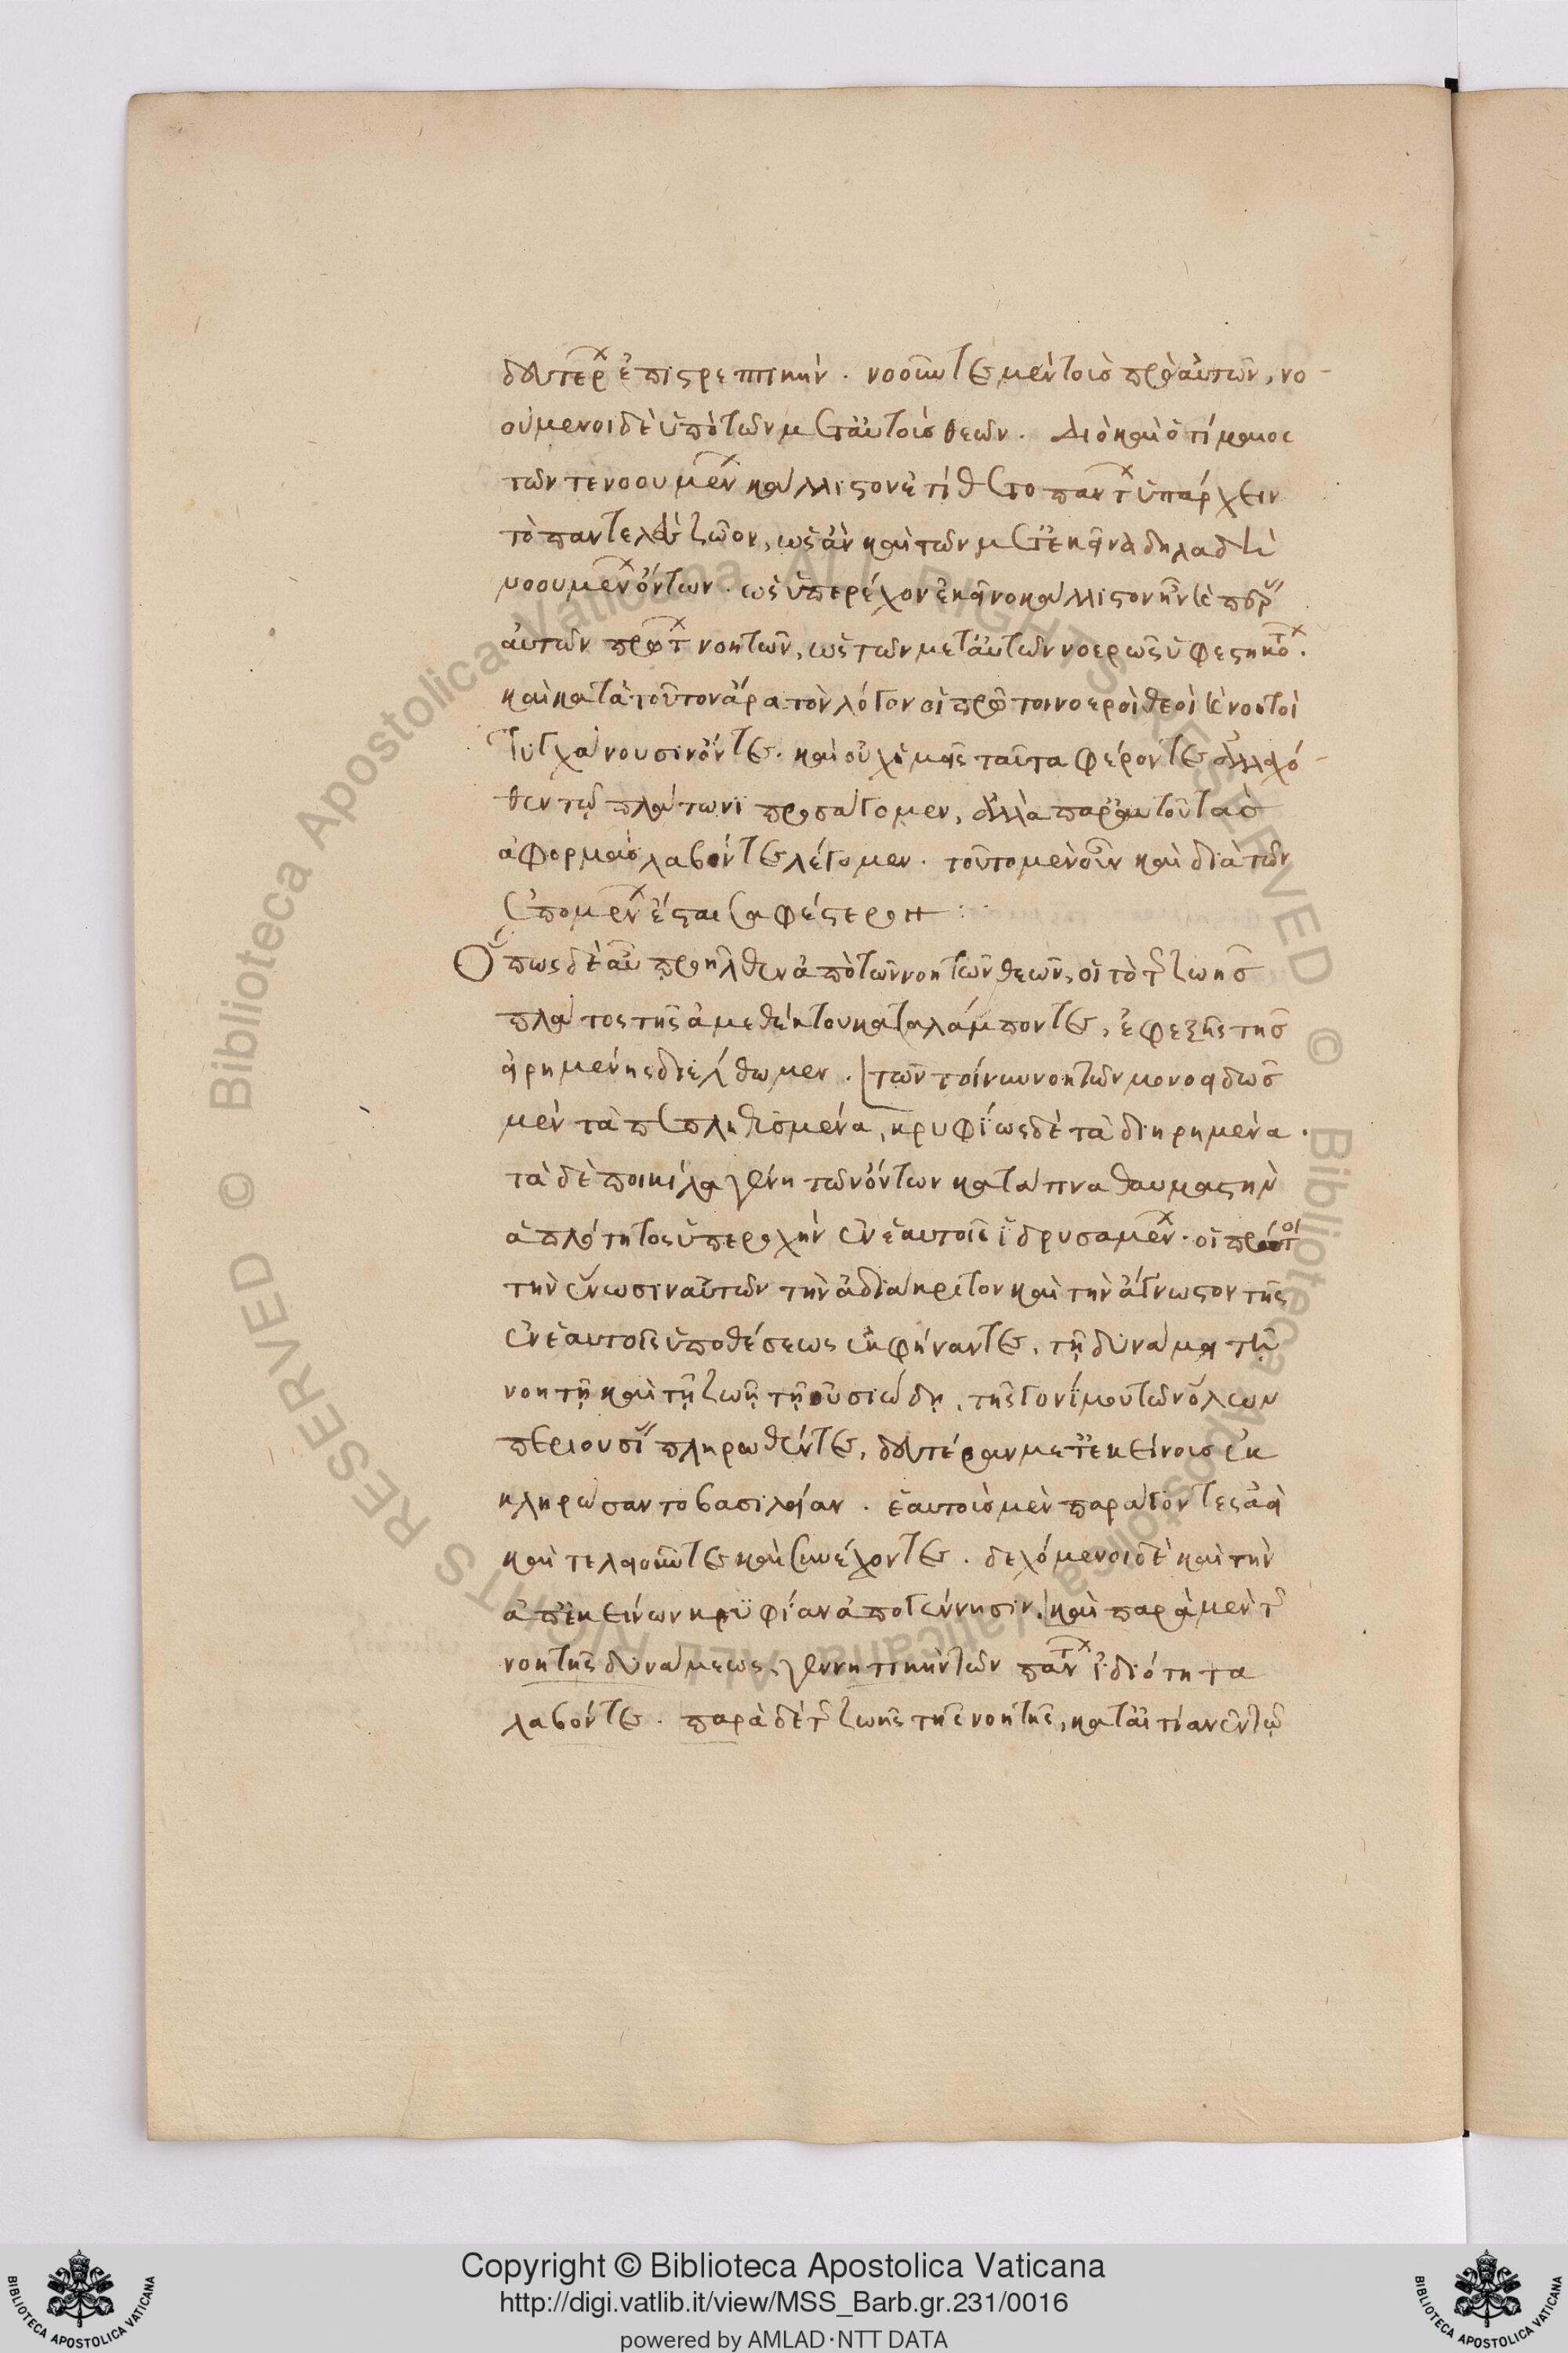 δευτέρων ἐπιστρεπτικήν. νοοῦντες μὲν τοὺς πρὸ αὐτῶν, νο-
ούμενοι δὲ ὑπὸ τῶν μετ' αὐτοὺς θεῶν. Διὸ καὶ ὁ τίμαιος
τῶν τε νοουμένων κάλλιστον ἐτίθετο πάντων ὑπάρχειν
τὸ παντελὲς ζῶον, ὡς ἂν καὶ τῶν μετ' ἐκεῖνα δηλαδὴ
νοουμένων ὄντων. ὡς ὑπερέχον ἐκεῖνο κάλλιστον ἦν καὶ παρ'
αὐτῶν πρώτων νοητῶν, ὡς τῶν μετ' αὐτῶν νοερῶς ὑφεστηκότων.
καὶ κατὰ τοῦτον ἄρα τὸν λόγον οἱ πρῶτοι νοεροὶ θεοὶ καὶ νοητοὶ
τυγχάνουσιν ὄντες. καὶ οὐχ ἡμεῖς ταῦτα φέροντες ἀλλαχό-
θεν τῷ πλάτωνι προσάγομεν, ἀλλὰ παρ' αὐτοῦ τὰς
ἀφορμὰς λαβόντες λέγομεν. τοῦτο μὲν οὖν καὶ διὰ τῶν
ἑπομένων ἔσται σαφέστερον:
Ὅπως δὲ αὖ προῆλθεν ἀπὸ τῶν νοητῶν θεῶν, οἱ τὸ τῆς ζωῆς
πλάτος τῆς ἀμεθέκτου καταλάμποντες, ἐφεξῆς τῆς
εἰρημένης διέλθωμεν. τῶν τοίνυν νοητῶν μονοειδῶς
μὲν τὰ πεπληθυσμένα, κρυφίως δὲ τὰ διῃρημένα.
τὰ δὲ ποικίλα γένη τῶν ὄντων κατά τινα θαυμαστὴν
ἁπλότητος ὑπεροχὴν ἐν ἑαυτοῖς ἱδρυσαμένων. οἱ πρῶτοι
τὴν ἕνωσιν αὐτῶν τὴν ἀδιάκριτον καὶ τὴν ἄγνωστον τῆς
ἐν ἑαυτοῖς ὑποθέσεως ἐκφήναντες, τῇ δυνάμει τῇ
νοητῇ καὶ τῇ ζωῇ τῇ οὐσιώδῃ, τῆς γονίμου τῶν ὅλων
περιουσίας πληρωθέντες, δευτέραν μετ' ἐκείνοις ἐκ
κληρώσαντο βασιλείαν. ἑαυτοὺς μὲν παράγοντες ἀεὶ
καὶ τελειοῦντες καὶ συνέχοντες. δεχόμενοι δὲ καὶ τὴν
ἀπ' ἐκείνων κρυφίαν ἀπογέννησιν. καὶ παρὰ μὲν τῆς
νοητῆς δυνάμεως, γεννητικὴν τῶν πάντων ἰδιότητα
λαβόντες. παρὰ δὲ τῆς ζωῆς τῆς νοητῆς, κατ' αἰτίαν ἐν τῷ
Copyright © Biblioteca Apostolica Vaticana
http://digi.vatlib.it/view/MSS_Barb.gr.231/0016
powered by AMLAD·NTT DATA